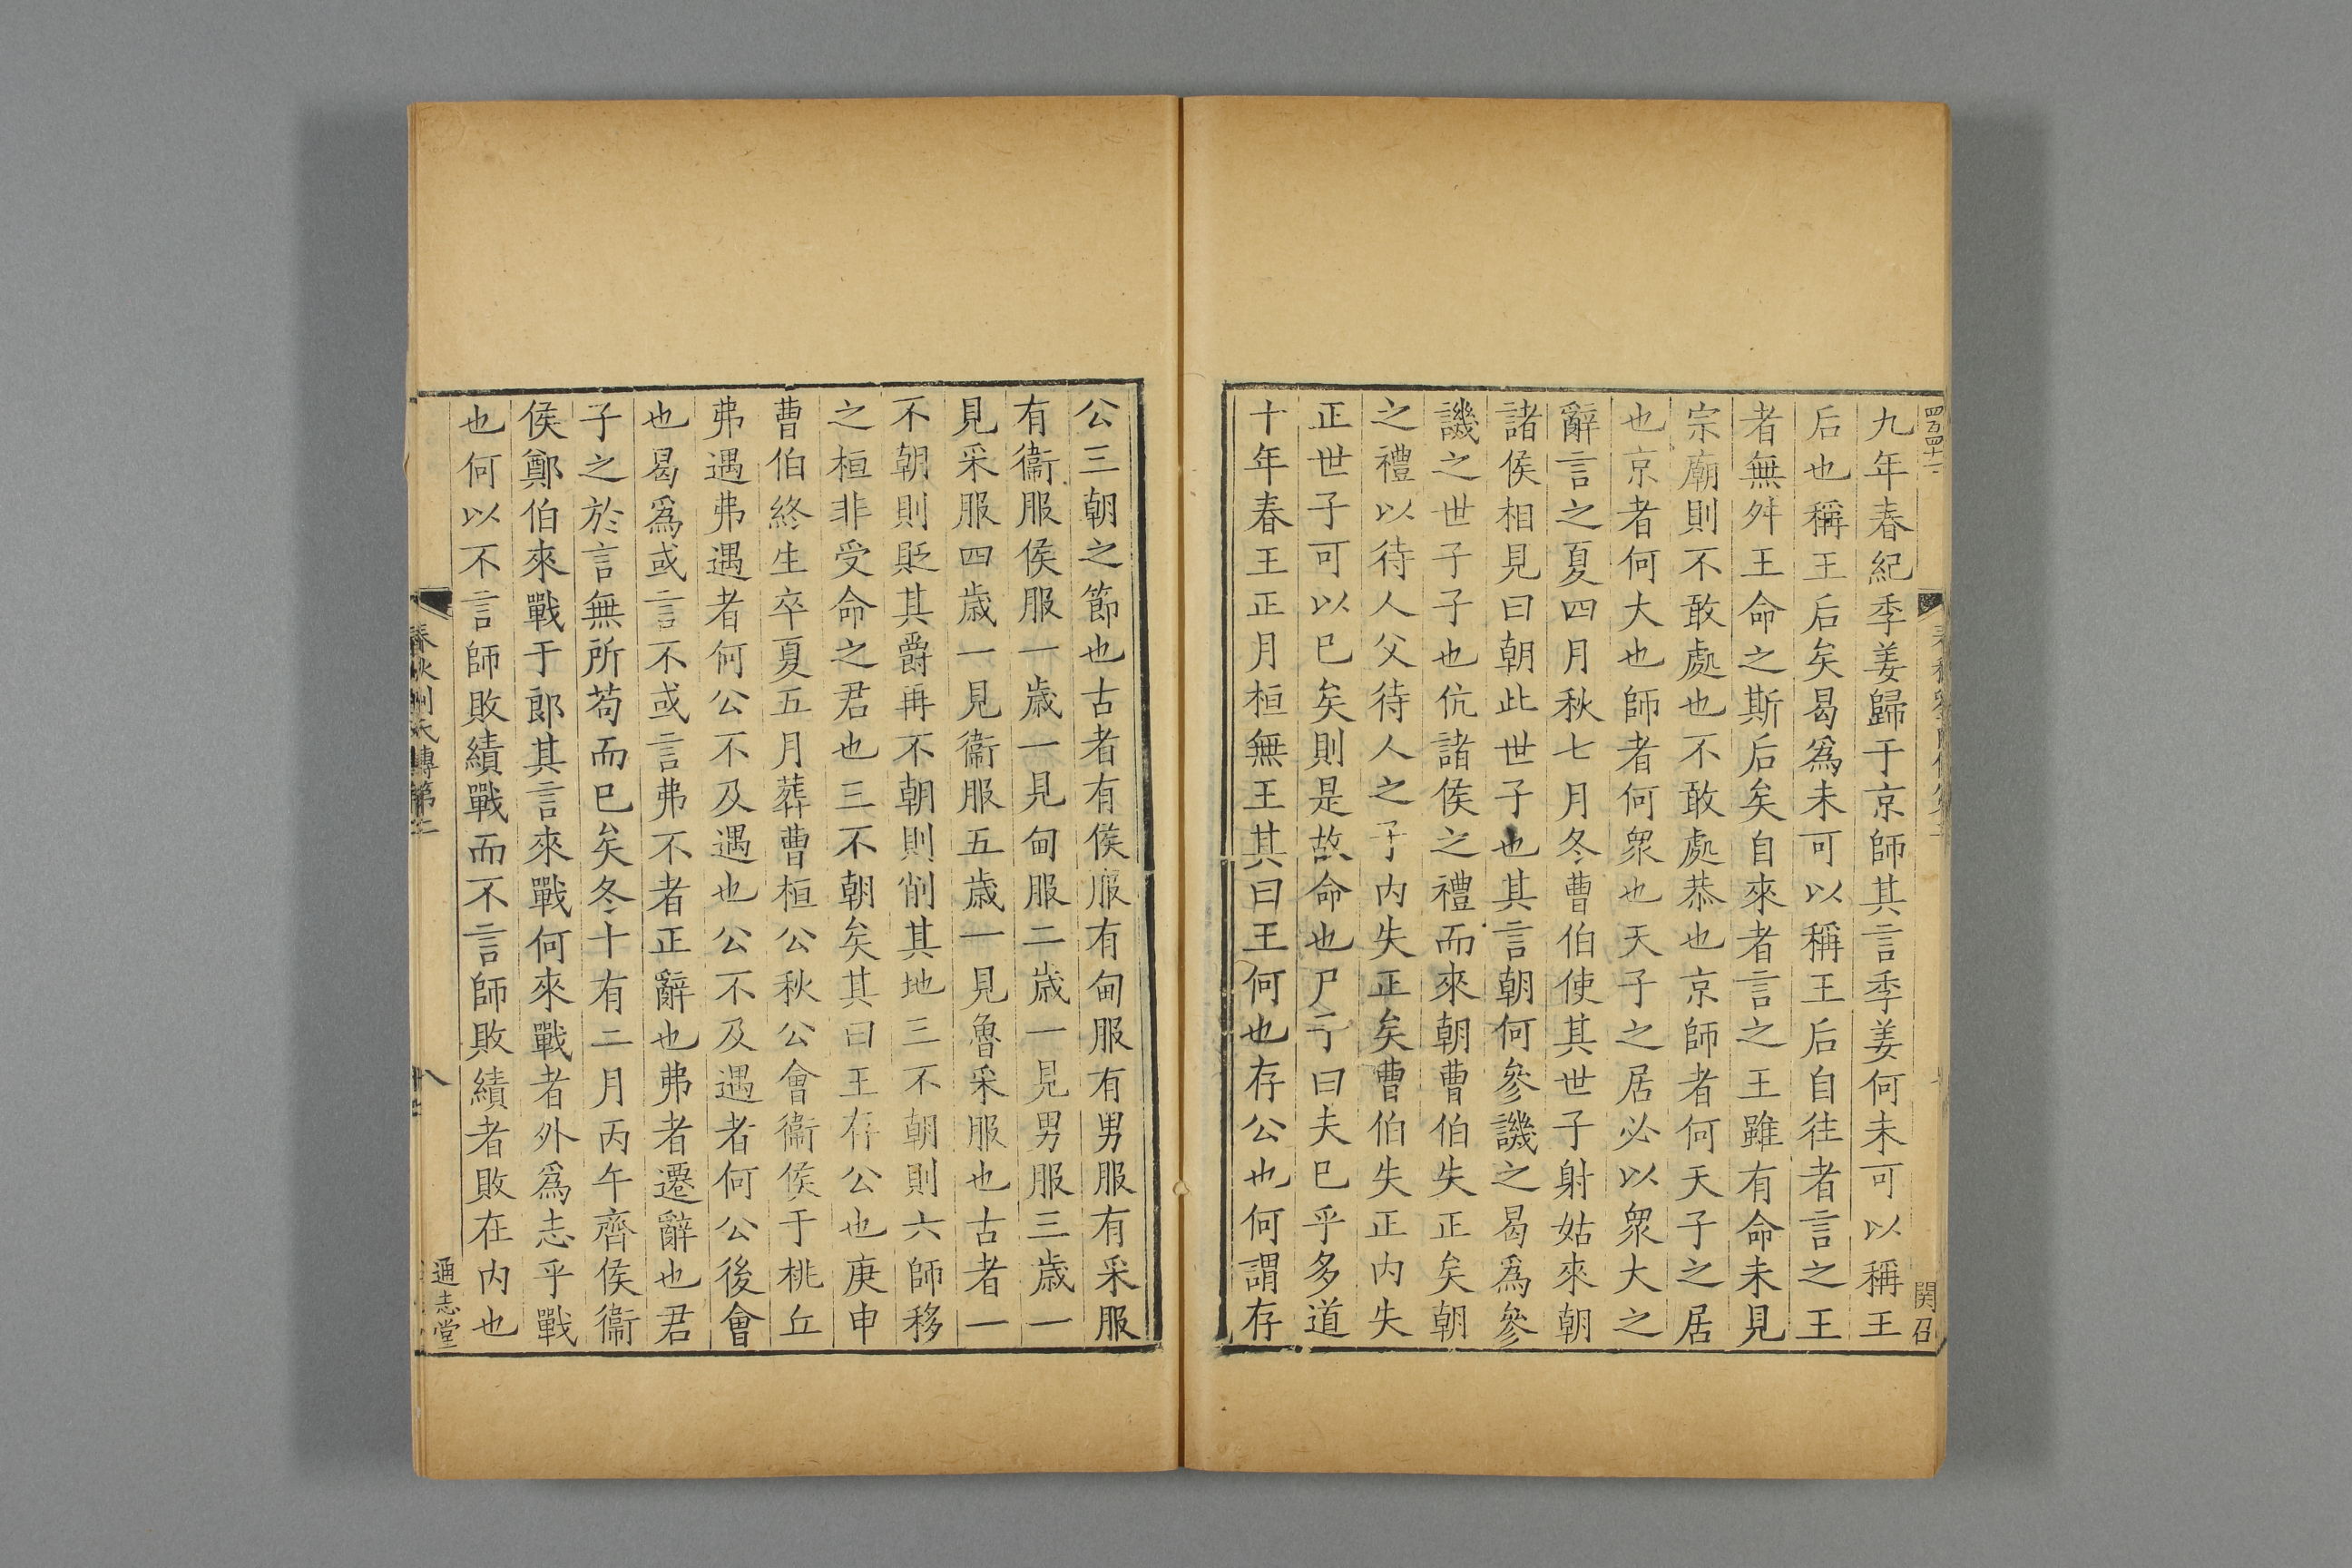 九年春紀季姜歸于京師其言季姜何未可以稱王
后也稱王后矣曷爲未可以稱王后自往者言之王
者無舛王命之斯后矣自來者言之王雖有命未見
宗廟則不敢處也不敢處恭也京師者何天子之居
也京者何大也師者何衆也天子之居必以衆大之
辭言之夏四月秋七月冬曹伯使其世子射姑來朝
諸侯相見曰朝此世子也其言朝何參譏之曷爲參
譏之世子子也伉諸侯之禮而來朝曹伯失正矣朝
之禮以待人父待人之子内失正矣曹伯失正内失
正世子可以巳矣則是故命也尸子曰夫巳乎多道
十年春王正月桓無王其曰王何也存公也何謂存
公三朝之節也古者有侯服有甸服有男服有采服
有衞服侯服一歲一見甸服二歲一見男服三歲一
見采服四歲一見衞服五歲一見魯采服也古者一
不朝則貶其爵再不朝則削其地三不朝則六師移
之桓非受命之君也三不朝矣其曰王存公也庚申
曹伯終生卒夏五月葬曹桓公秋公會衞侯于桃丘
弗遇弗遇者何公不及遇也公不及遇者何公後會
也曷爲或言不或言弗不者正辭也弗者遷辭也君
子之於言無所苟而巳矣冬十有二月丙午齊侯衞
侯鄭伯來戰于郎其言來戰何來戰者外爲志乎戰
也何以不言師敗績戰而不言師敗績者敗在内也
春秋劉氏傳第二
八
通志堂